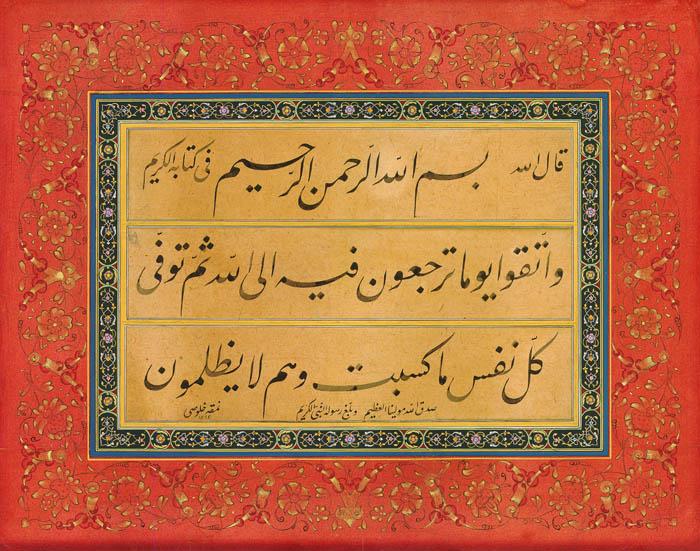 قال الله بسم الله الرّحمن الرّحيم فى كتابه الكريم
واتّقوا يوما ترجعون فيه الى الله ثمّ توفّى
كلّ نفس ما كسبت وهم لا يظلمون
صدق الله مولينا العظيم وبلغ رسوله النبى الكريم
نمقه خلوصى